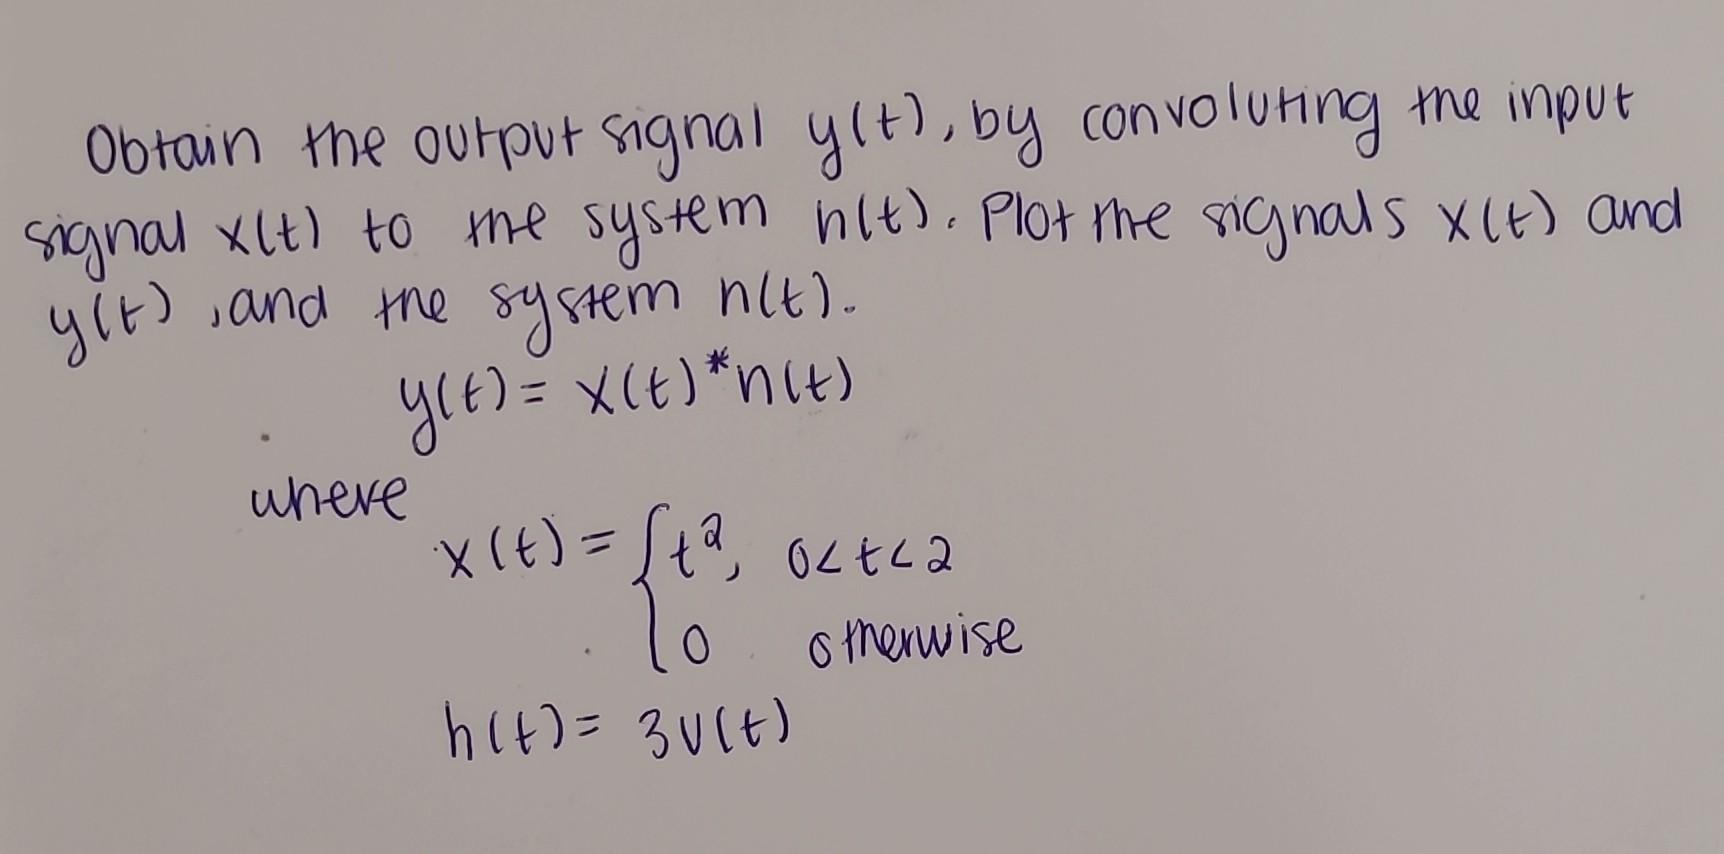 Obtain the output signal y(t), by convoluting the input
signal x(t) to the system h(t). Plot the signals x(t) and
y(t), and the system h(t).
y(t) = x(t) * h(t)
where
x(t) = { t², 0<t<2
0 otherwise
h(t) = 3u(t)